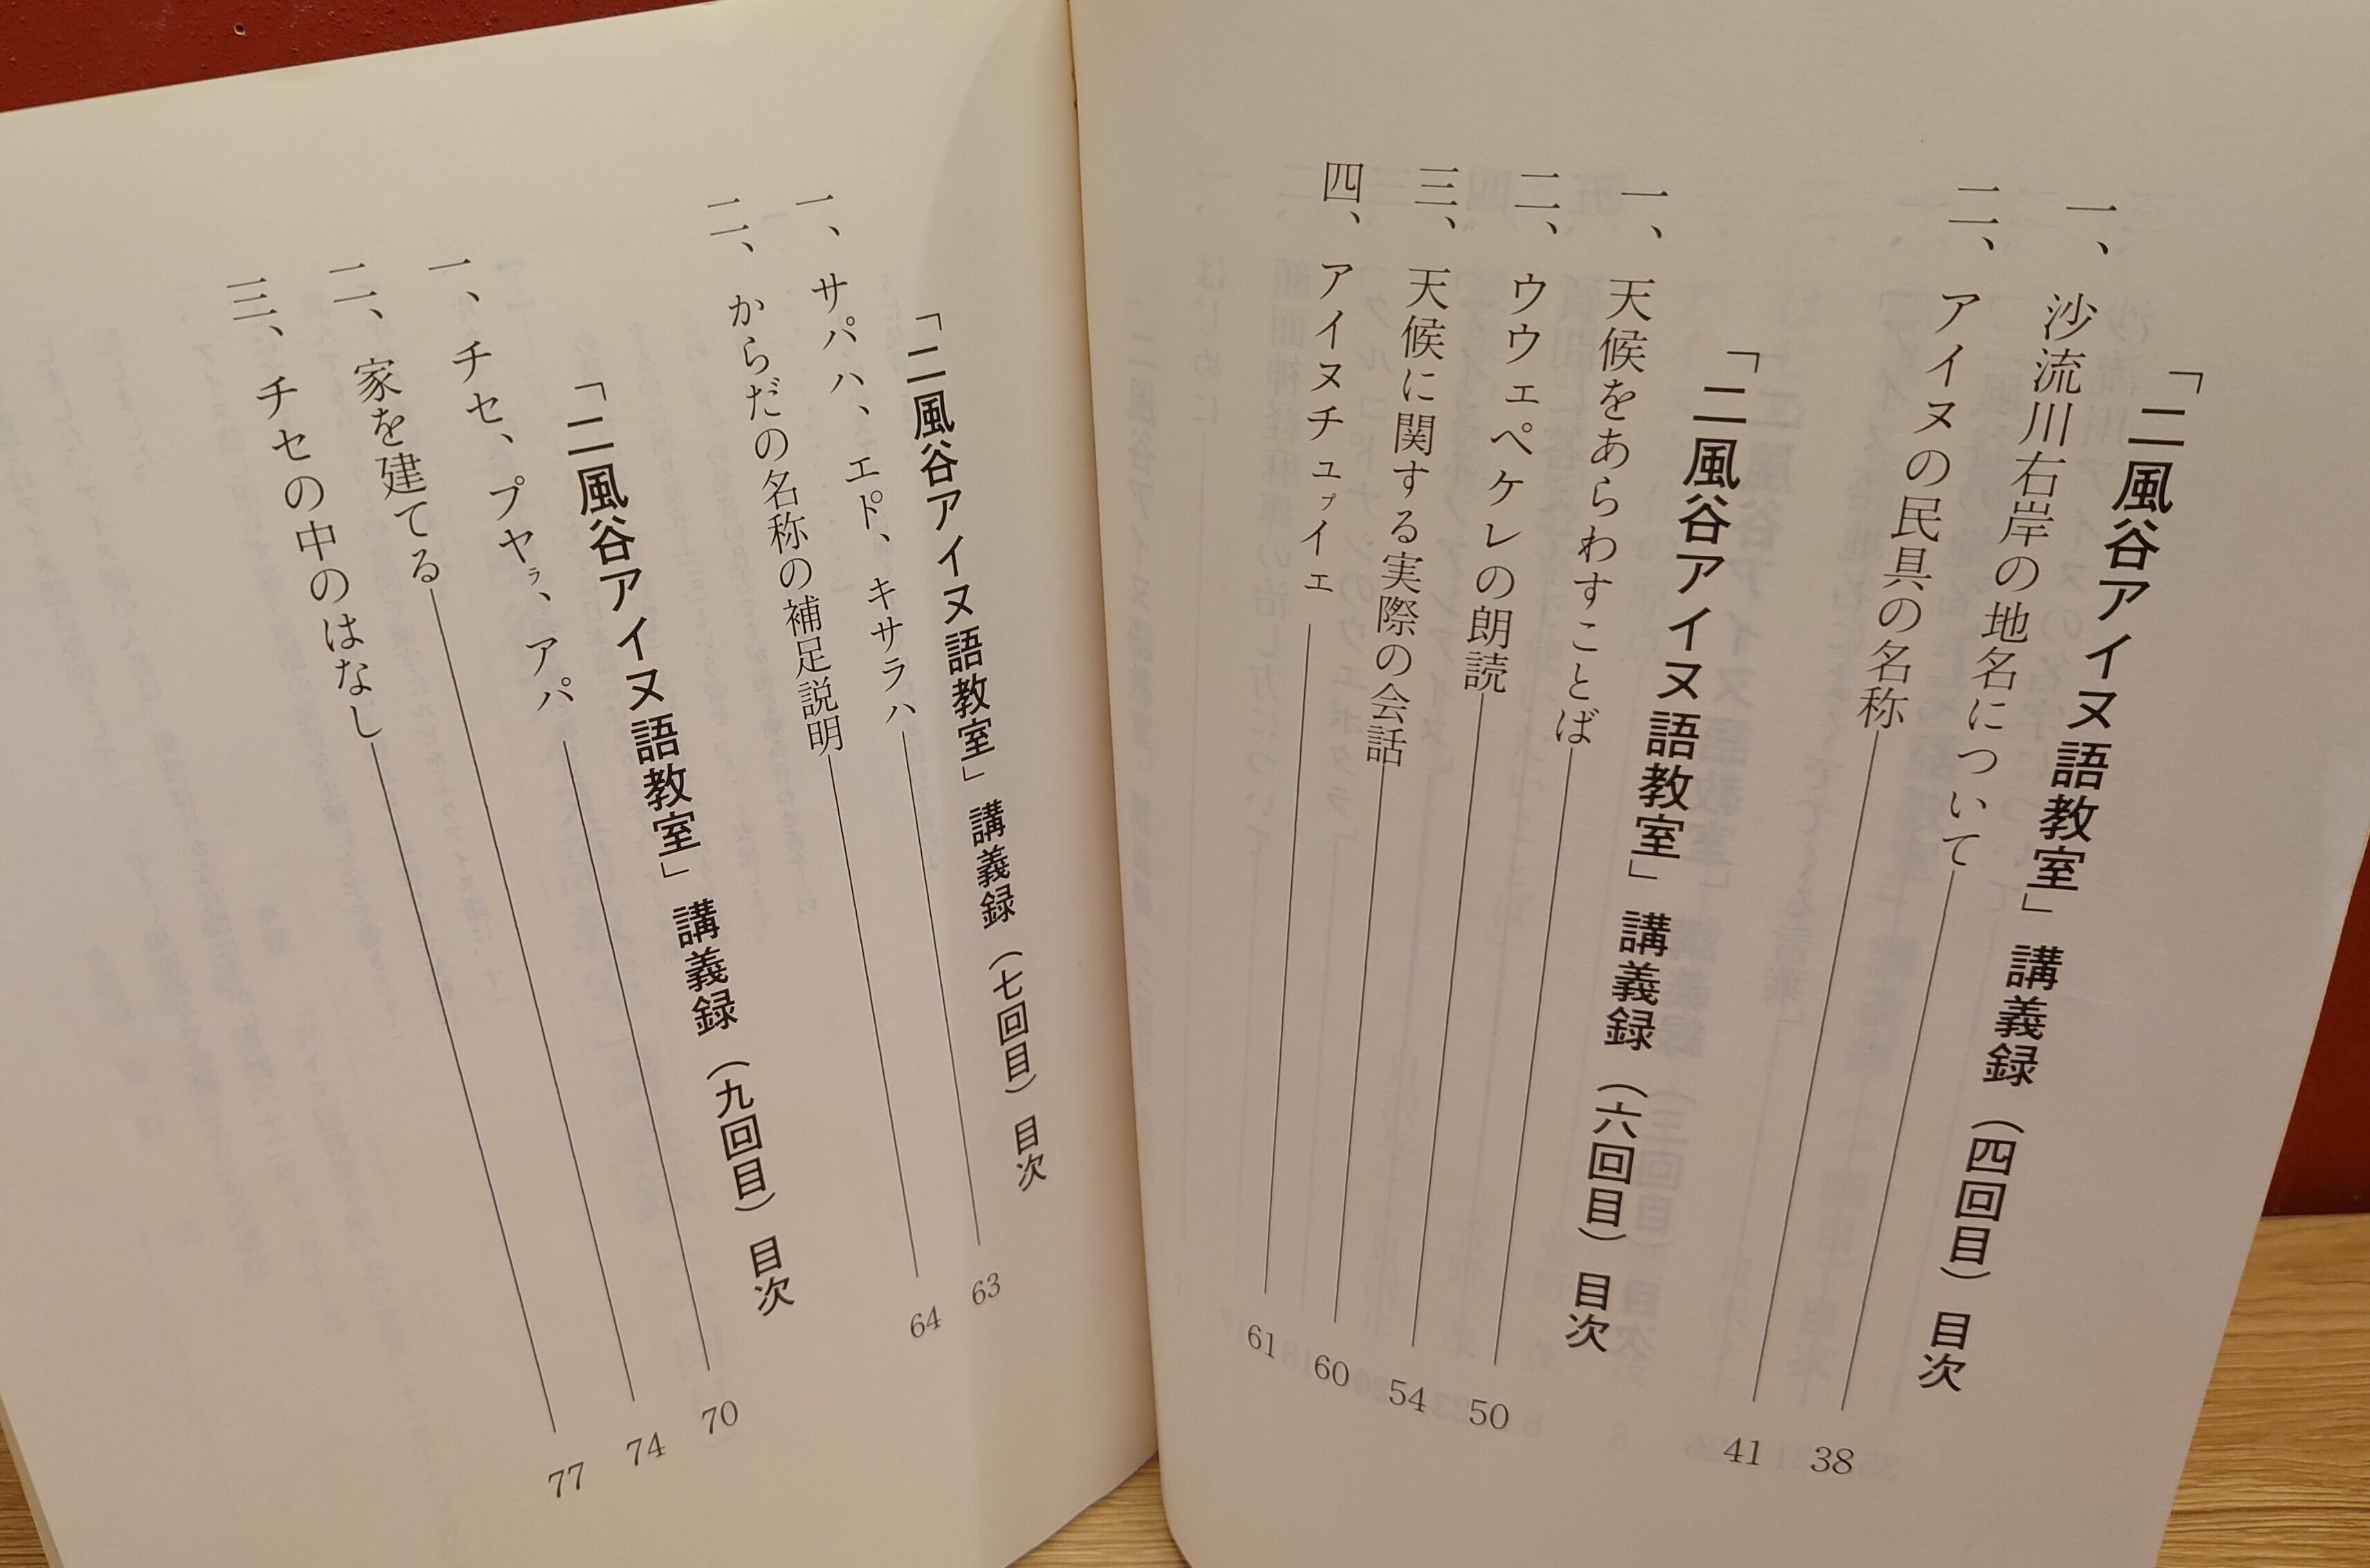 「二風谷アイヌ語教室」講義録(四回目)目次
一、沙流川右岸の地名について 38
二、アイヌの民具の名称 41
「二風谷アイヌ語教室」講義録(六回目)目次
一、天候をあらわすことば 50
二、ウウェペケレの朗読 54
三、天候に関する実際の会話 60
四、アイヌチュㇷ゚イェ 61
「二風谷アイヌ語教室」講義録(七回目)目次
一、サパハ、エト゚、キサラハ 63
二、からだの名称の補足説明 64
「二風谷アイヌ語教室」講義録(九回目)目次
一、チセ、プヤㇻ、アパ 70
二、家を建てる 74
三、チセの中のはなし 77